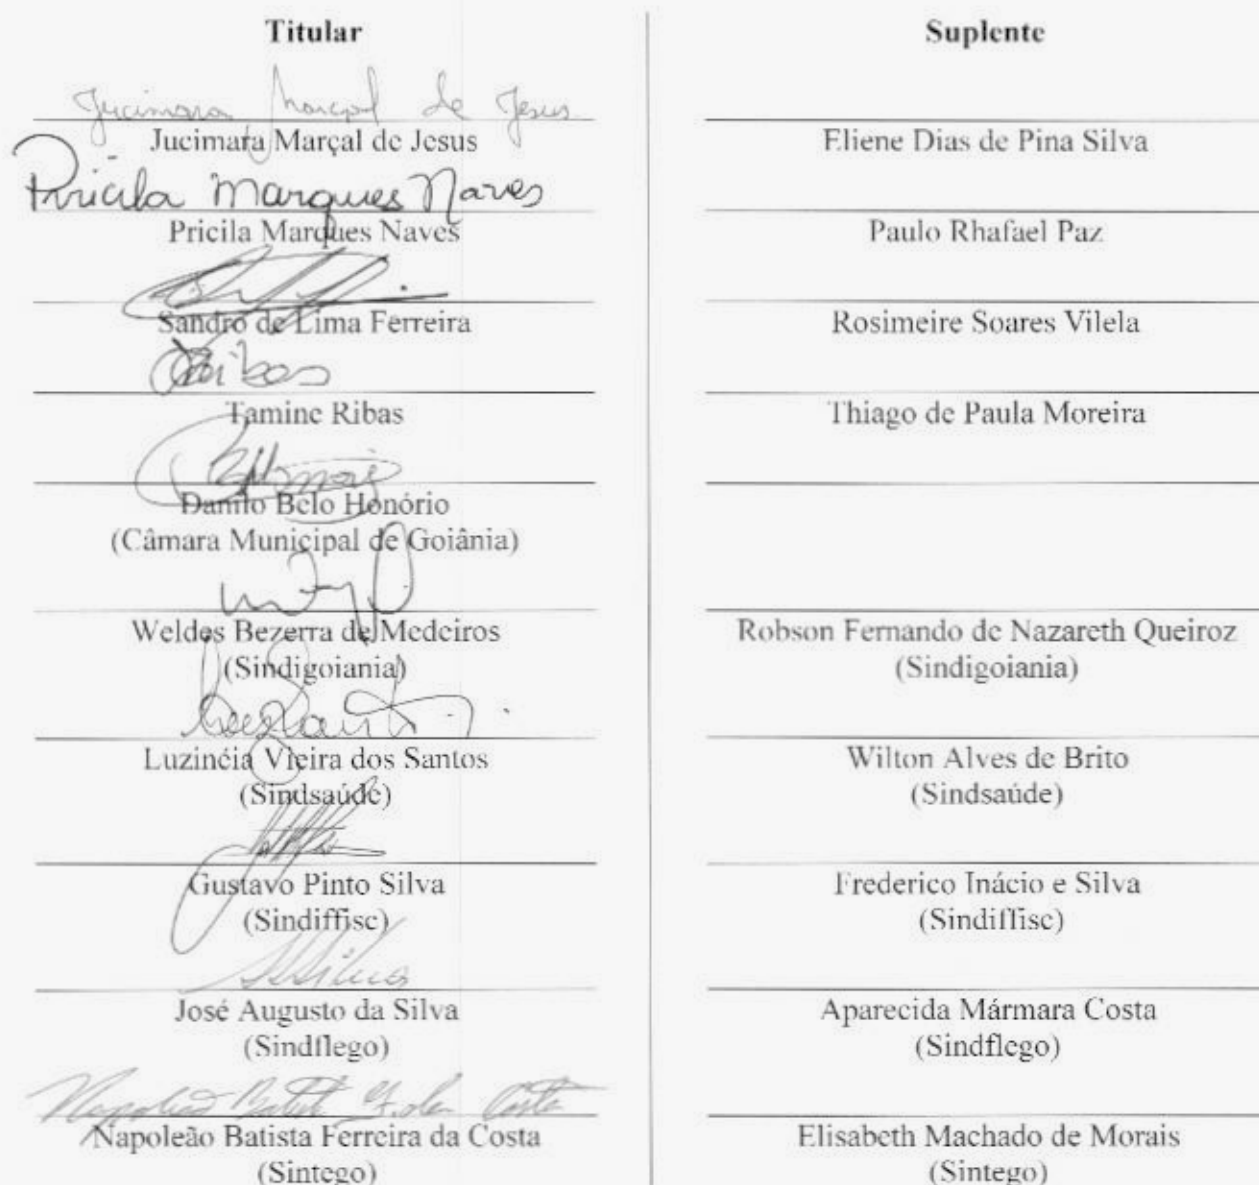 Titular
Jucimara Marçal de Jesus
Jucimara Marçal de Jesus
Pricila Marques Naves
Pricila Marques Naves
Sandro de Lima Ferreira
Ribas
Tamine Ribas
Danilo Belo Honório
(Câmara Municipal de Goiânia)
Weldes Bezerra de Medeiros
(Sindigoiania)
Luzinéia Vieira dos Santos
(Sindsaúde)
Gustavo Pinto Silva
(Sindiffisc)
José Augusto da Silva
(Sindflego)
Napoleão Batista F. da Costa
Napoleão Batista Ferreira da Costa
(Sintego)
Suplente
Eliene Dias de Pina Silva
Paulo Rhafael Paz
Rosimeire Soares Vilela
Thiago de Paula Moreira
Robson Fernando de Nazareth Queiroz
(Sindigoiania)
Wilton Alves de Brito
(Sindsaúde)
Frederico Inácio e Silva
(Sindiffisc)
Aparecida Mármara Costa
(Sindflego)
Elisabeth Machado de Morais
(Sintego)